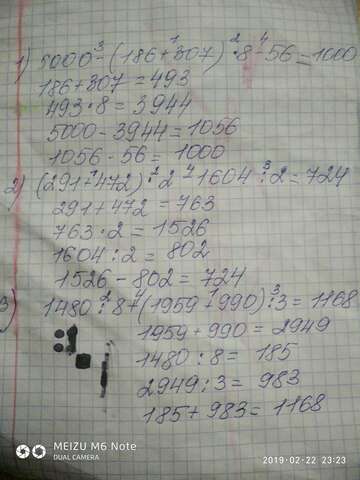 1) 5000 - (186+307) · 8 - 56 = 1000
186+307 = 493
493 · 8 = 3944
5000 - 3944 = 1056
1056 - 56 = 1000
2) (291+472) · 2 - 1604 : 2 = 724
291 + 472 = 763
763 · 2 = 1526
1604 : 2 = 802
1526 - 802 = 724
3) 1480 : 8 + (1959 + 990) : 3 = 1168
1959 + 990 = 2949
1480 : 8 = 185
2949 : 3 = 983
185 + 983 = 1168
MEIZU M6 Note
DUAL CAMERA
2019-02-22 23:23